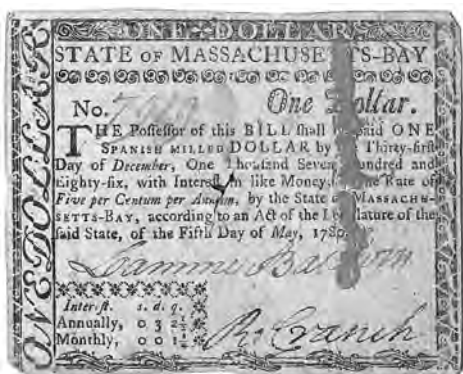 ONE DOLLAR
STATE OF MASSACHUSETTS-BAY
No. One Dollar.
THE Poſſeſſor of this BILL ſhall be paid ONE
SPANISH MILLED DOLLAR by the Thirty-firſt
Day of December, One Thouſand Seven Hundred and
Eighty-ſix, with Intereſt in like Money, at the Rate of
Five per Centum per Annum, by the State of MASSACHU-
SETTS-BAY, according to an Act of the Legiſlature of the
ſaid State, of the Fifth Day of May, 1780.
Loammi Baldwin
Intereſt. s. d. q.
Annually, 0 3 2
Monthly, 0 0 1
R. Cranch
ONE DOLLAR